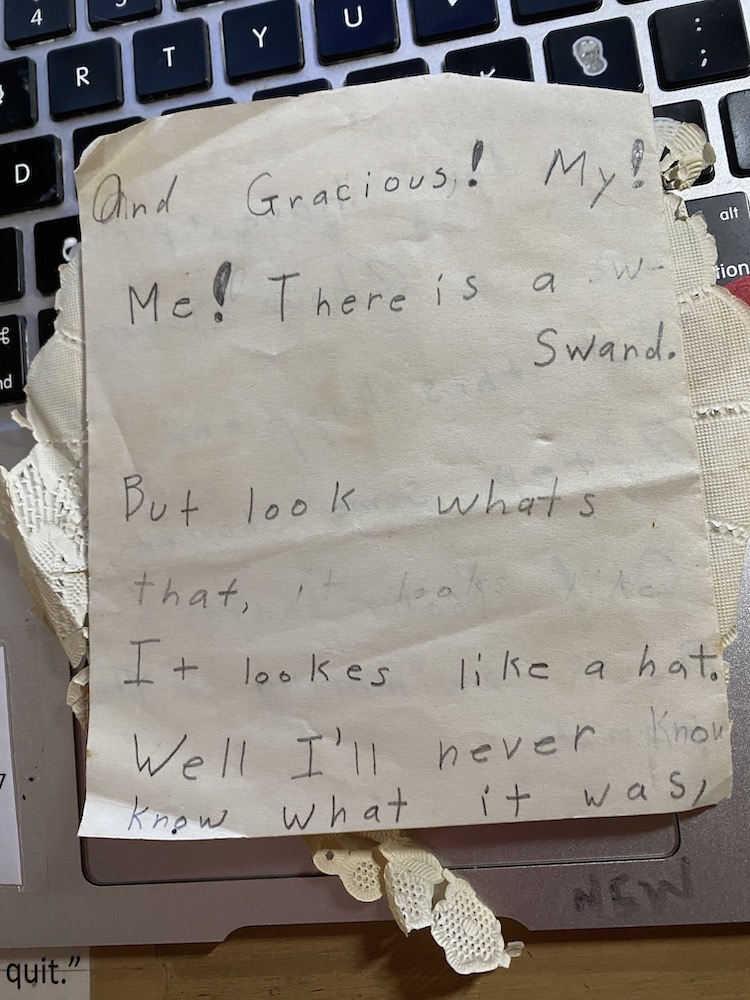 4
R T Y U
; :
D
alt
tion
⌘
nd
And Gracious! My!
Me! There is a w-
Swand.
But look whats
that, it looks like
It lookes like a hat.
Well I'll never know
know what it was,
NEW
7
quit.”